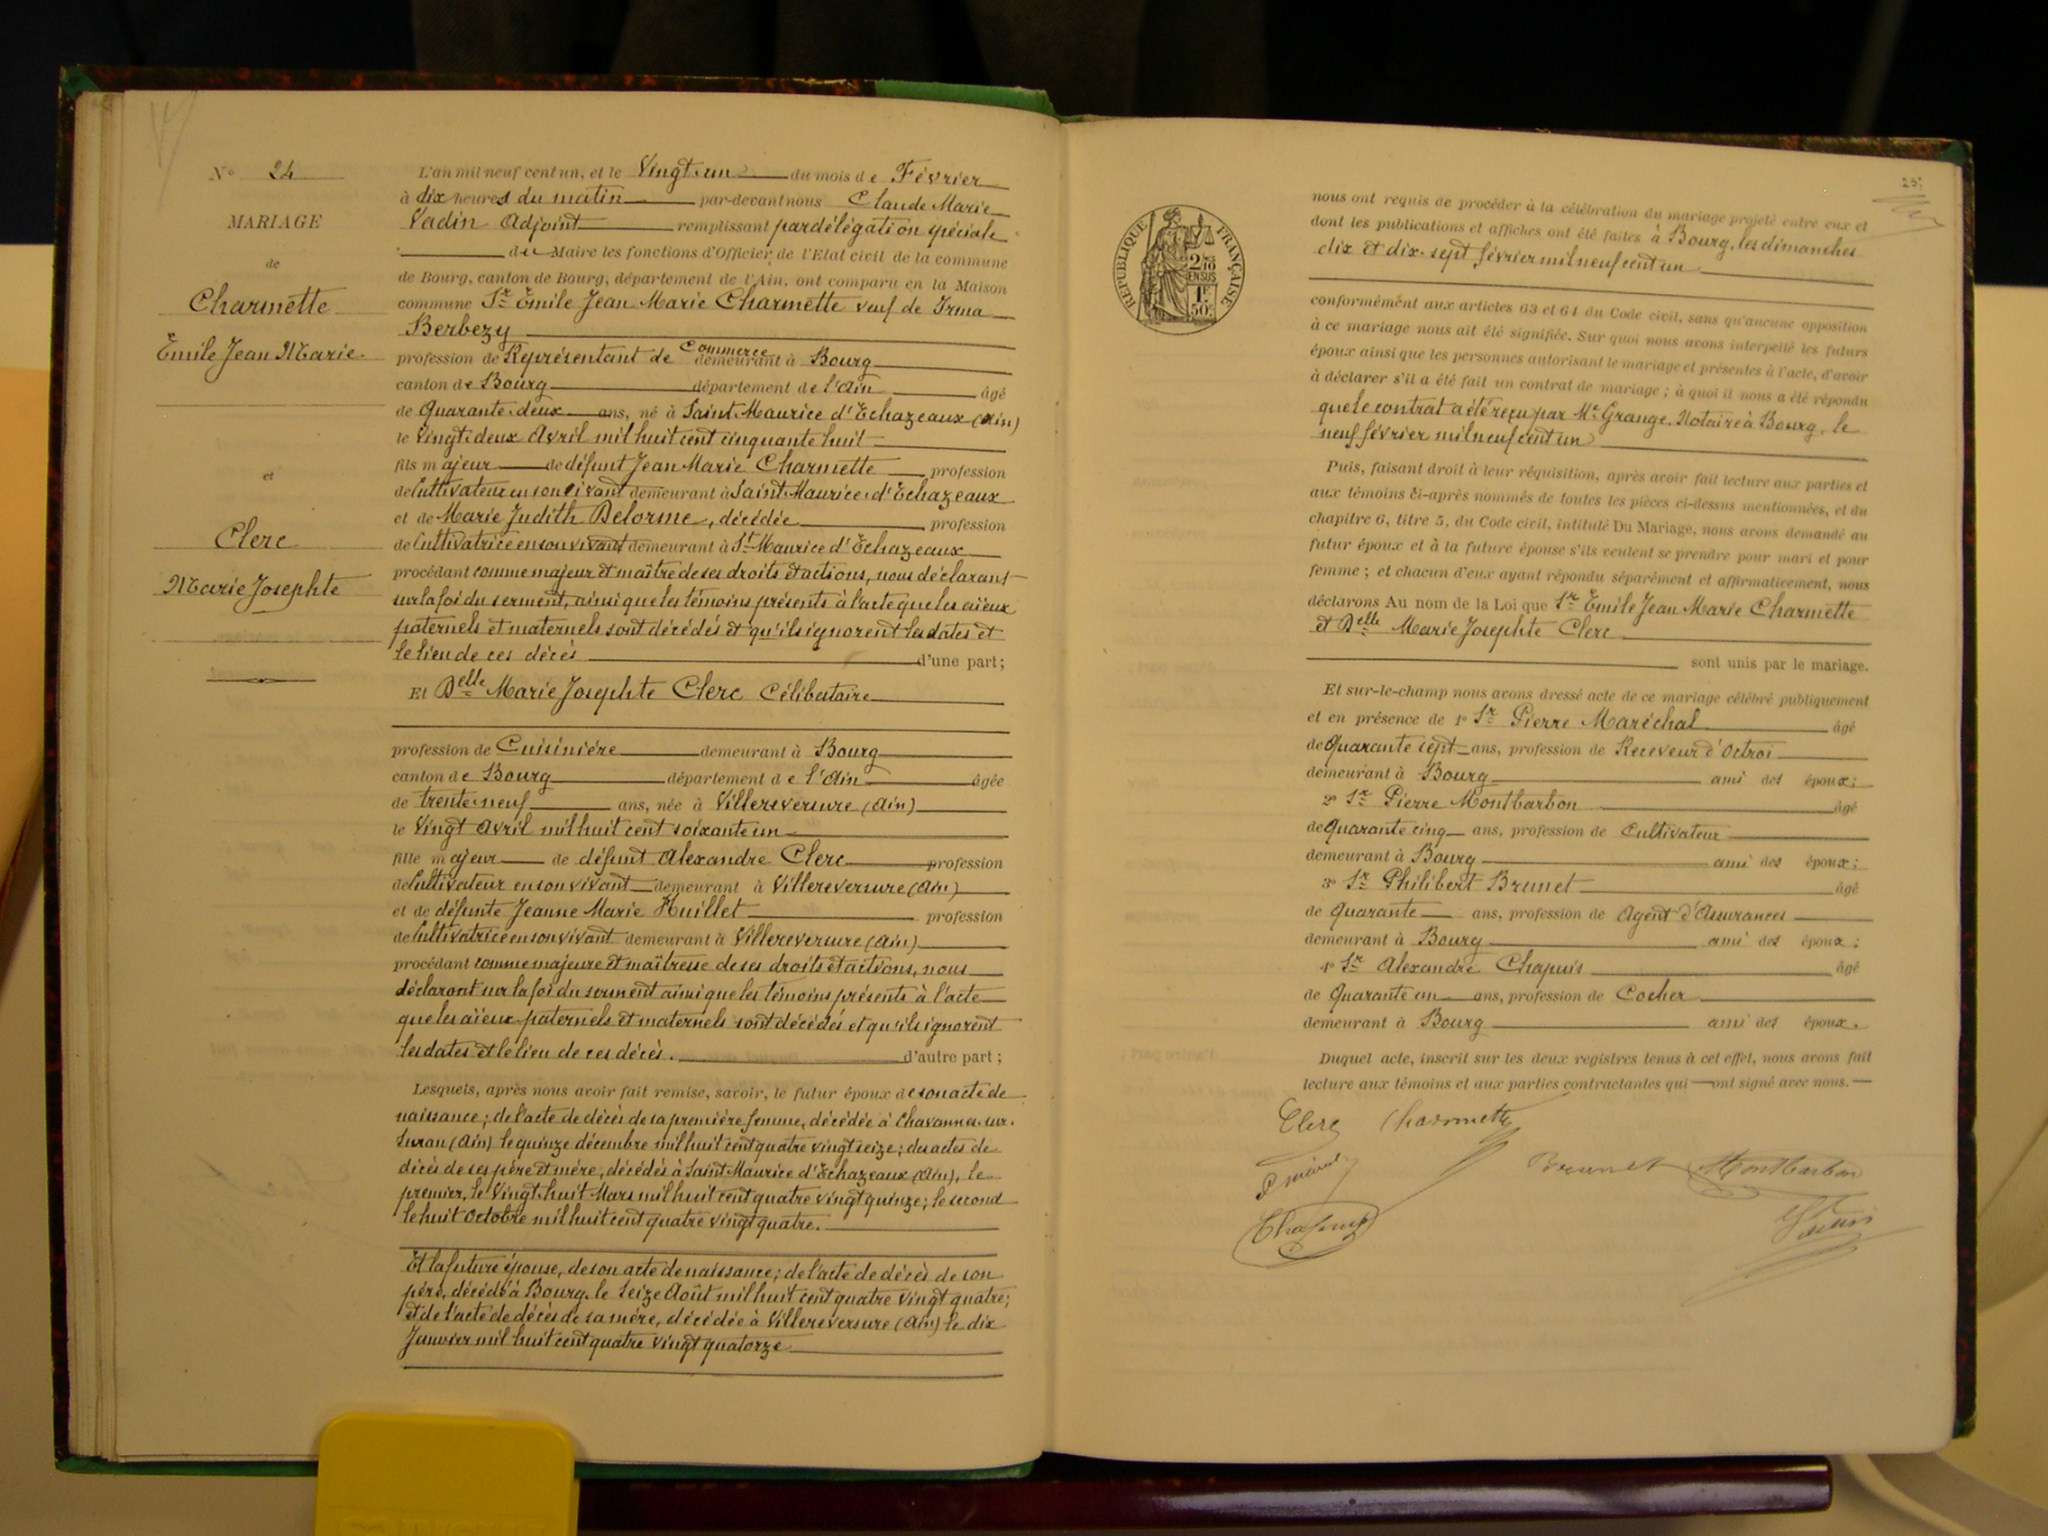 No 24
MARIAGE
de
Charmette
Emile Jean Marie
et
Clerc
Marie Josephte
L'an mil neuf cent un, et le Vingt-un du mois de Février
à dix heures du matin par-devant nous Claude Marie
Vadin Adjoint remplissant par délégation spéciale
du Maire les fonctions d'Officier de l'Etat civil de la commune
de Bourg, canton de Bourg, département de l'Ain, ont comparu en la Maison
commune Sr Emile Jean Marie Charmette veuf de Irma
Berbezy
profession de Représentant de Commerce demeurant à Bourg
canton de Bourg département de l'Ain âgé
de Quarante-deux ans, né à Saint-Maurice d'Echazeaux (Ain)
le Vingt-deux Avril mil huit cent cinquante huit
fils majeur de défunt Jean Marie Charmette profession
de Cultivateur en son vivant demeurant à Saint-Maurice d'Echazeaux
et de Marie Judith Delorme, décédée profession
de Cultivatrice en son vivant demeurant à St-Maurice d'Echazeaux
procédant comme majeur et maître de ses droits et actions, nous déclarant
sur la foi du serment, ainsi que les témoins présents à l'acte que les aïeux
paternels et maternels sont décédés et qu'ils ignorent les dates et
le lieu de ces décès d'une part;
Et Delle Marie Josephte Clerc Célibataire
profession de Cuisinière demeurant à Bourg
canton de Bourg département de l'Ain âgée
de trente-neuf ans, née à Villereversure (Ain)
le Vingt Avril mil huit cent soixante un
fille majeur de défunt Alexandre Clerc profession
de Cultivateur en son vivant demeurant à Villereversure (Ain)
et de défunte Jeanne Marie Huillet profession
de Cultivatrice en son vivant demeurant à Villereversure (Ain)
procédant comme majeure et maîtresse de ses droits et actions, nous
déclarant sur la foi du serment ainsi que les témoins présents à l'acte
que les aïeux paternels et maternels sont décédés et qu'ils ignorent
les dates et le lieu de ces décès. d'autre part;
Lesquels, après nous avoir fait remise, savoir, le futur époux de son acte de
naissance; de l'acte de décès de sa première femme, décédée à Chavannes-sur-
Suran (Ain) le quinze décembre mil huit cent quatre vingt seize; des actes de
décès de ses père et mère, décédés à Saint Maurice d'Echazeaux (Ain), le
premier, le Vingt-huit Mars mil huit cent quatre vingt quinze; le second
le huit Octobre mil huit cent quatre vingt quatre.
Et la future épouse, de son acte de naissance; de l'acte de décès de son
père, décédé à Bourg, le Seize Août mil huit cent quatre vingt quatre;
et de l'acte de décès de sa mère, décédée à Villereversure (Ain) le dix
Janvier mil huit cent quatre vingt quatorze
REPUBLIQUE FRANÇAISE
2/10
EN SUS
1F
50c
nous ont requis de procéder à la célébration du mariage projeté entre eux et
dont les publications et affiches ont été faites à Bourg, les dimanches
dix et dix-sept février mil neuf cent un
conformément aux articles 63 et 64 du Code civil, sans qu'aucune opposition
à ce mariage nous ait été signifiée. Sur quoi nous avons interpellé les futurs
époux ainsi que les personnes autorisant le mariage et présentes à l'acte, d'avoir
à déclarer s'il a été fait un contrat de mariage; à quoi il nous a été répondu
que le contrat a été reçu par Me Grange, Notaire à Bourg, le
neuf février mil neuf cent un
Puis, faisant droit à leur réquisition, après avoir fait lecture aux parties et
aux témoins ci-après nommés de toutes les pièces ci-dessus mentionnées, et du
chapitre 6, titre 5, du Code civil, intitulé Du Mariage, nous avons demandé au
futur époux et à la future épouse s'ils veulent se prendre pour mari et pour
femme; et chacun d'eux ayant répondu séparément et affirmativement, nous
déclarons Au nom de la Loi que Sr Emile Jean Marie Charmette
et Delle Marie Josephte Clerc
sont unis par le mariage.
Et sur-le-champ nous avons dressé acte de ce mariage célébré publiquement
et en présence de 1o Sr Pierre Maréchal âgé
de Quarante sept ans, profession de Receveur d'Octroi
demeurant à Bourg ami des époux;
2o Sr Pierre Montbarbon âgé
de Quarante cinq ans, profession de Cultivateur
demeurant à Bourg ami des époux;
3o Sr Philibert Brunet âgé
de Quarante ans, profession de Agent d'Assurances
demeurant à Bourg ami des époux;
4o Sr Alexandre Chapuis âgé
de Quarante un ans, profession de Cocher
demeurant à Bourg ami des époux.
Duquel acte, inscrit sur les deux registres tenus à cet effet, nous avons fait
lecture aux témoins et aux parties contractantes qui ont signé avec nous.
Clerc Charmette
Brunet Montbarbon
Chapuis